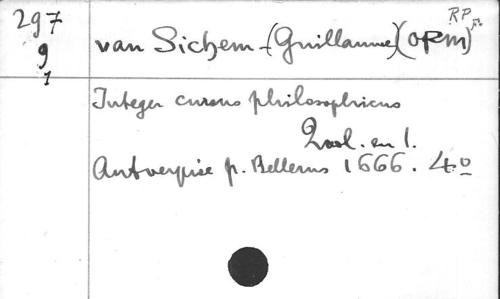 297
9
1
RP
van Sichem (Guillaume) (ORM)
Integer cursus philosophicus
2 vol. en 1.
Antverpiæ p. Bellerus 1666. 4º